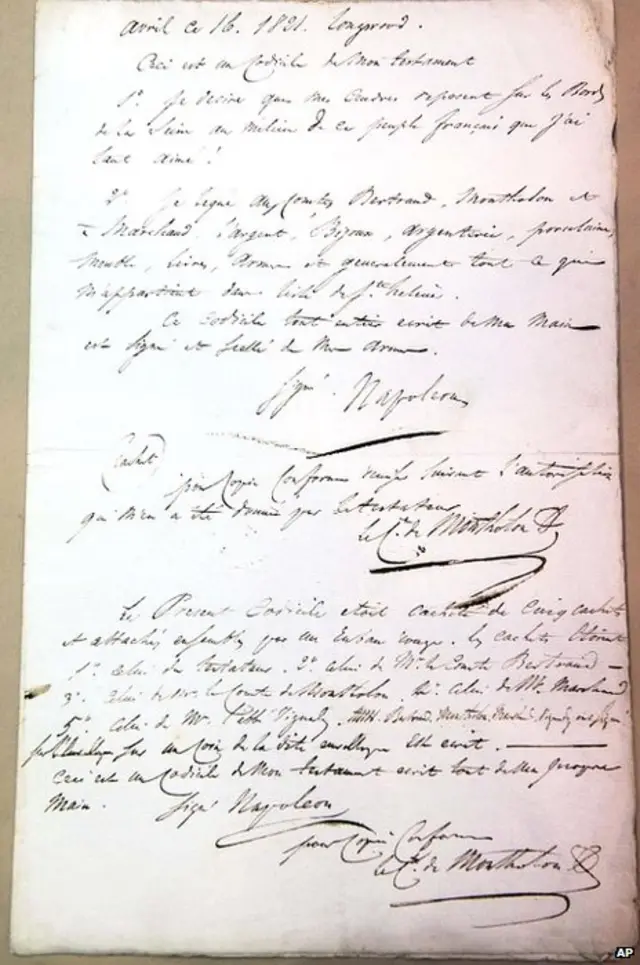 avril ce 16. 1821. Longwood.
Ceci est un Codicile de Mon testament
1° Je desire que mes Cendres reposent sur les Bords
de la Seine au milieu de ce peuple français que j'ai
tant aimé!
2° Je legue aux Comtes Bertrand, Montholon et
Marchand l'argent, Bijoux, argenterie, porcelaine,
Meuble, Livres, Armes et generalement tout ce qui
m'appartient dans l'isle de Ste helene.
Ce Codicile tout entier ecrit de Ma Main
est signé et scellé de Mes Armes.
signé Napoleon
Cachet
pour Copie Conforme suivant l'autorisation
qui m'en a été donnée par le testateur
le Cte de Montholon
Le Present Codicile etoit cacheté de Cinq cachets
et attachés ensembles par un Ruban rouge. les cachets etoient
1° celui du testateur. 2° celui de Mr le Comte Bertrand —
3° celui de Mr le Comte de Montholon 4° celui de Mr Marchand
5° celui de Mr l'abbé Vignaly, Bertrand, Montholon, Marchand, Vignaly ont signé
sur l'enveloppe sur un Coin de la dite enveloppe Est ecrit. —
Ceci est un Codicile de Mon testament ecrit tout de Ma propre
Main. signé Napoleon
pour Copie Conforme
le Cte de Montholon
AP